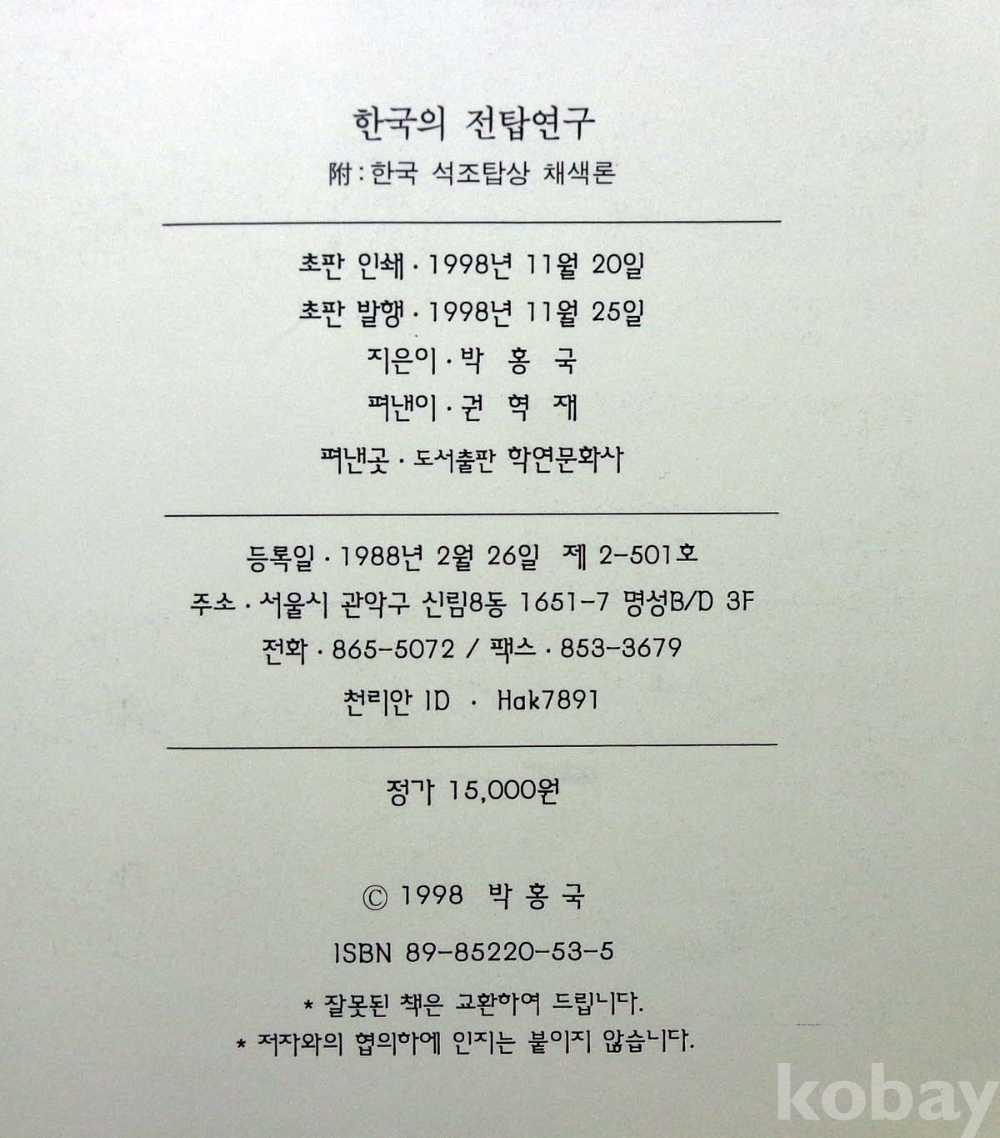 한국의 전탑연구
附 : 한국 석조탑상 채색론
초판 인쇄 · 1998년 11월 20일
초판 발행 · 1998년 11월 25일
지은이 · 박 홍 국
펴낸이 · 권 혁 재
펴낸곳 · 도서출판 학연문화사
등록일 · 1988년 2월 26일 제 2-501호
주소 · 서울시 관악구 신림8동 1651-7 명성B/D 3F
전화 · 865-5072 / 팩스 · 853-3679
천리안 ID · Hak7891
정가 15,000원
© 1998 박 홍 국
ISBN 89-85220-53-5
* 잘못된 책은 교환하여 드립니다.
* 저자와의 협의하에 인지는 붙이지 않습니다.
kobay